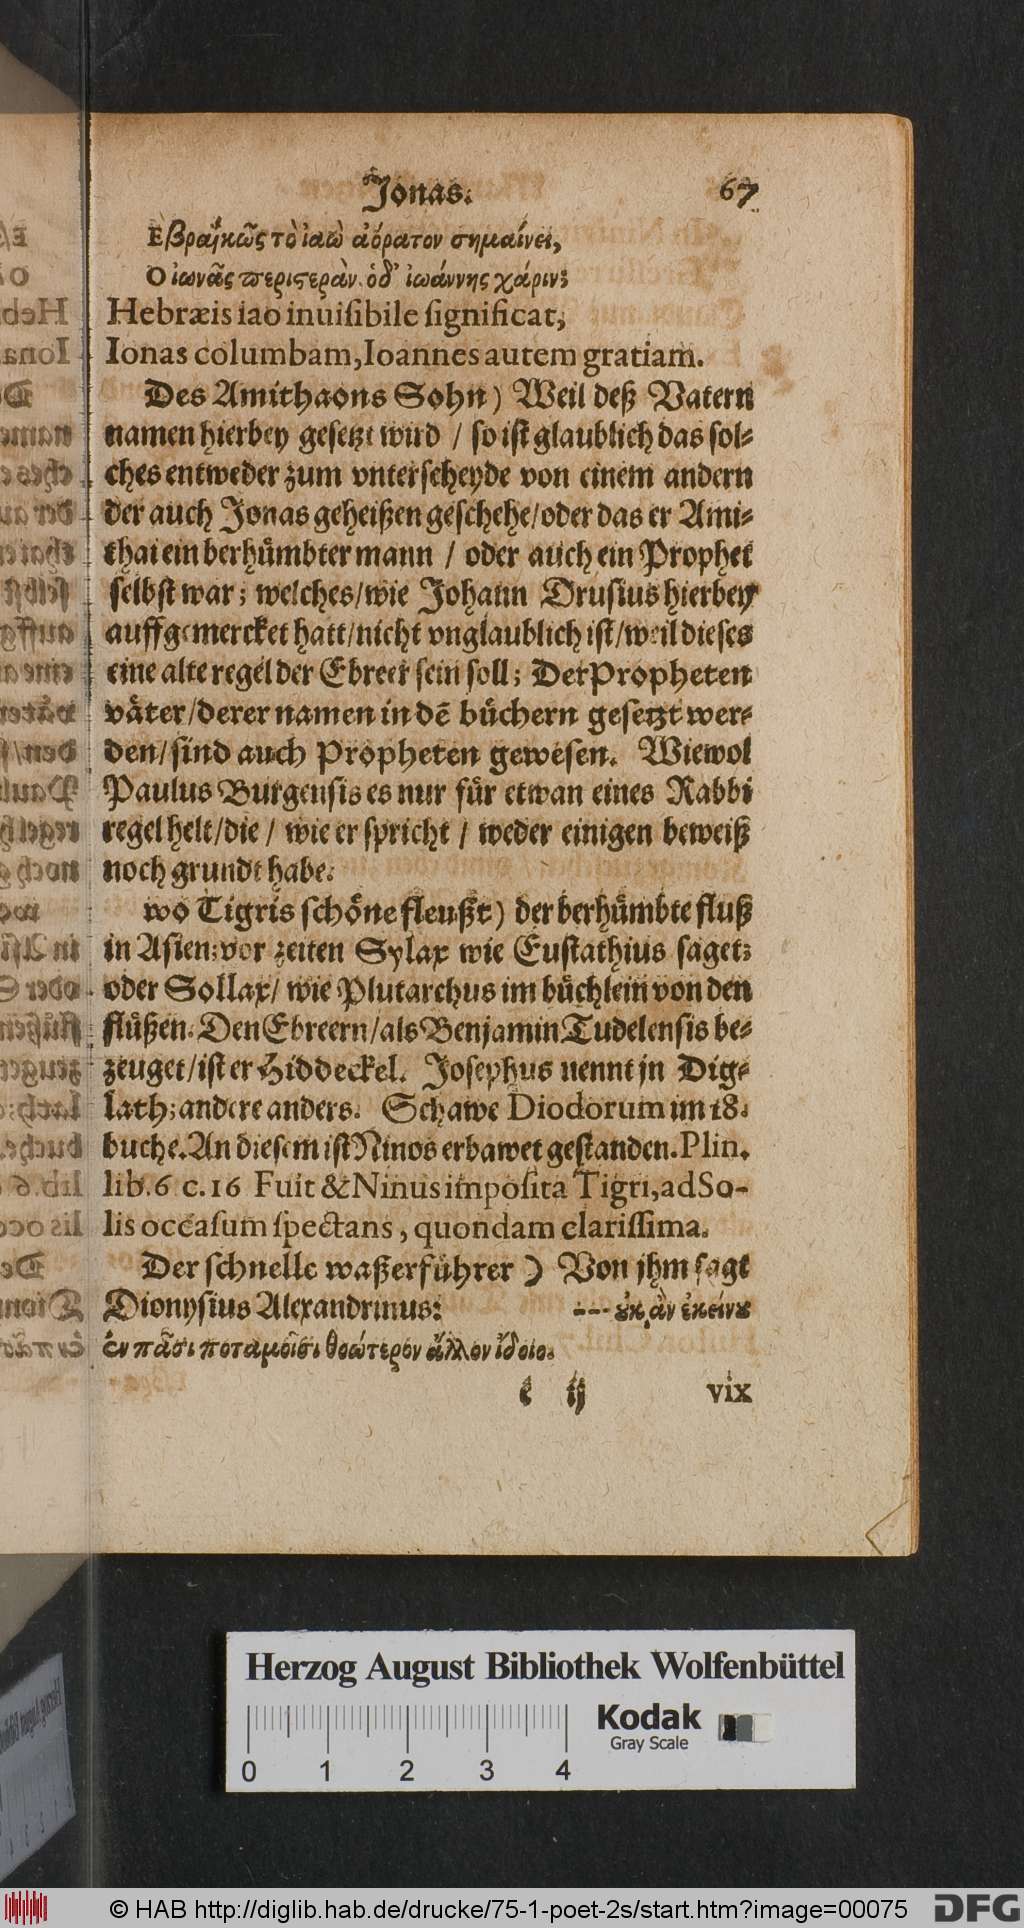 Jonas. 67
Ἑβραϊκῶς τὸ ἰαὼ ἀόρατον σημαίνει,
Ὁ ἰωνᾶς περιστερὰν, ὁδ' ἰωάννης χάριν:
Hebræis iao inuiſibile ſignificat,
Ionas columbam, Ioannes autem gratiam.
Des Amithaons Sohn) Weil deß Vatern
namen hierbey geſetzt wird / ſo iſt glaublich das ſol⸗
ches entweder zum vnterſcheyde von einem andern
der auch Jonas geheißen geſchehe/oder das er Ami⸗
thai ein berhuͤmbter mann / oder auch ein Prophet
ſelbſt war; welches/wie Johann Druſius hierbey
auffgemercket hatt/nicht vnglaublich iſt/weil dieſes
eine alte regel der Ebreer ſein ſoll; Der Propheten
vaͤter/derer namen in dē buͤchern geſetzt wer⸗
den/ſind auch Propheten geweſen. Wiewol
Paulus Burgenſis es nur fuͤr etwan eines Rabbi
regel helt/die / wie er ſpricht / weder einigen beweiß
noch grundt habe.
wo Tigris ſchoͤne fleußt) der berhuͤmbte fluß
in Aſien; vor zeiten Sylax wie Euſtathius ſaget;
oder Sollax/ wie Plutarchus im buͤchlein von den
fluͤßen. Den Ebreern/als Benjamin Tudelenſis be⸗
zeuget/iſt er Hiddeckel. Joſephus nennt jn Dig⸗
lath; andere anders. Schawe Diodorum im 18.
buche. An dieſem iſt Ninos erbawet geſtanden. Plin.
lib. 6 c. 16 Fuit & Ninus impoſita Tigri, ad So-
lis occaſum ſpectans, quondam clariſſima.
Der ſchnelle waßerfuͤhrer) Von jhm ſagt
Dionyſius Alexandrinus: --- οὐκ ἂν ἐκείνου
ἐν πᾶσι ποταμοῖσι θοώτερον ἄλλον ἴδοιο.
e ij vix
Herzog August Bibliothek Wolfenbüttel
Kodak
Gray Scale
0 1 2 3 4
© HAB http://diglib.hab.de/drucke/75-1-poet-2s/start.htm?image=00075 DFG